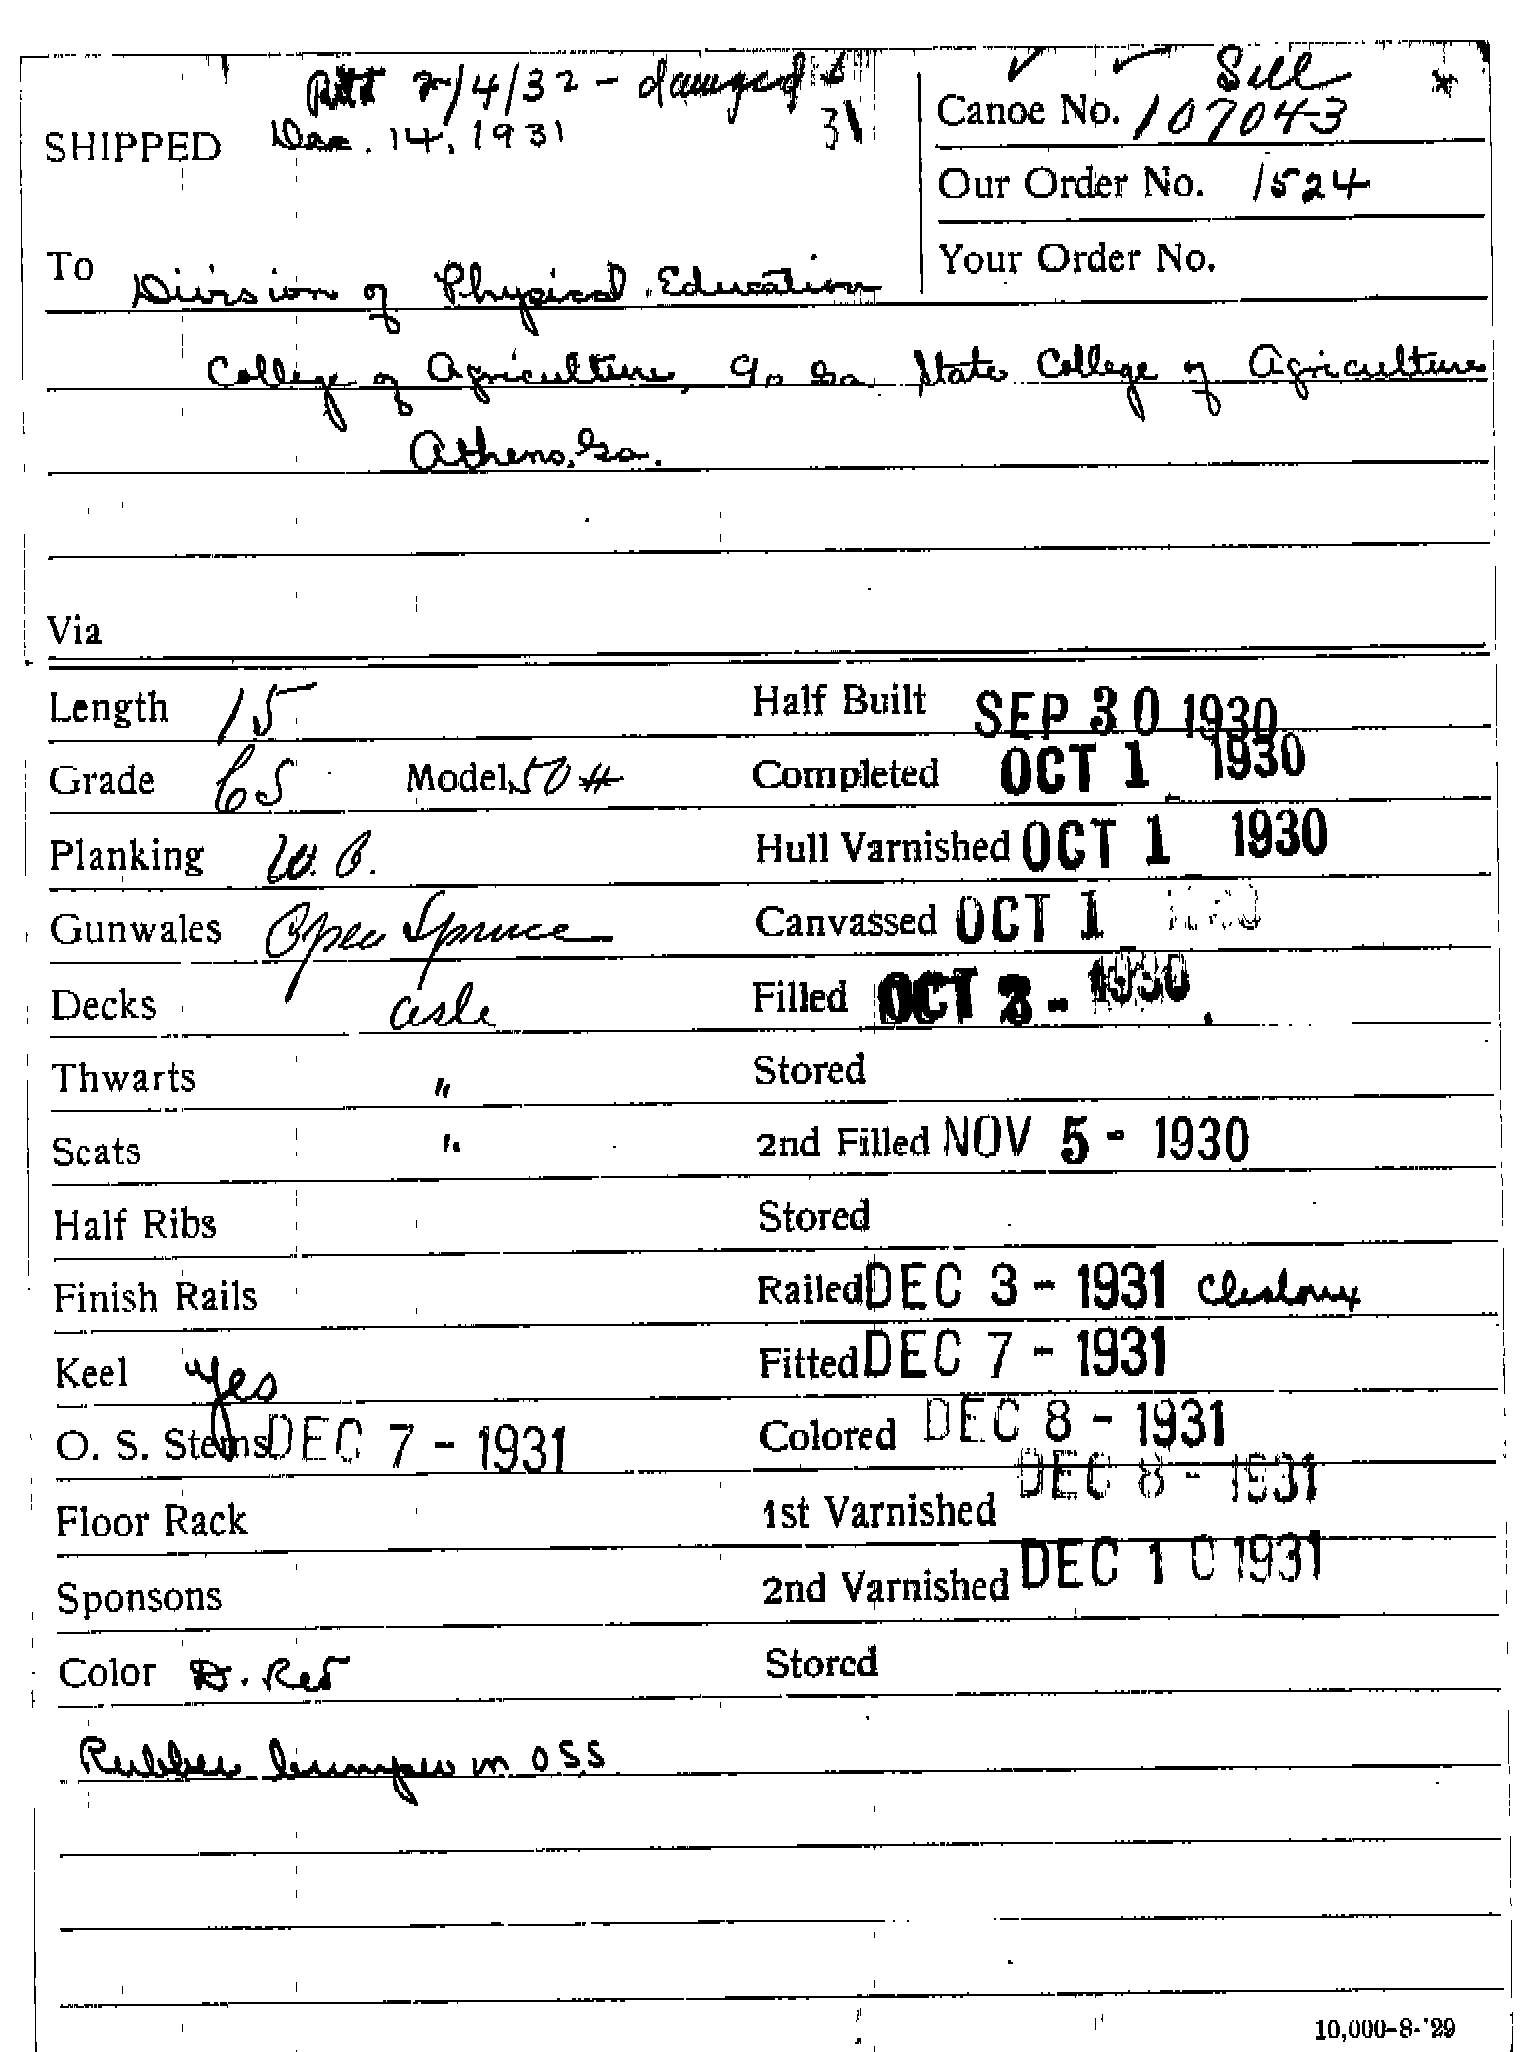 Rtd 2/4/32 - damaged
SHIPPED Dec. 14, 1931 31
Canoe No. 107043
Our Order No. 1524
Your Order No.
To Division of Physical Education
College of Agriculture, Ga State College of Agriculture
Athens, Ga.
Via
Length 15 Half Built SEP 30 1930
Grade CS Model 50# Completed OCT 1 1930
Planking W.C. Hull Varnished OCT 1 1930
Gunwales Open Spruce Canvassed OCT 1 1930
Decks Ash Filled OCT 3 - 1930
Thwarts " Stored
Seats " 2nd Filled NOV 5 - 1930
Half Ribs Stored
Finish Rails Railed DEC 3 - 1931
Keel Yes Fitted DEC 7 - 1931
O. S. Stems DEC 7 - 1931 Colored DEC 8 - 1931
Floor Rack 1st Varnished DEC 8 - 1931
Sponsons 2nd Varnished DEC 10 1931
Color D. Red Stored
Rubber bumper on O.S.S
10,000-8-'29